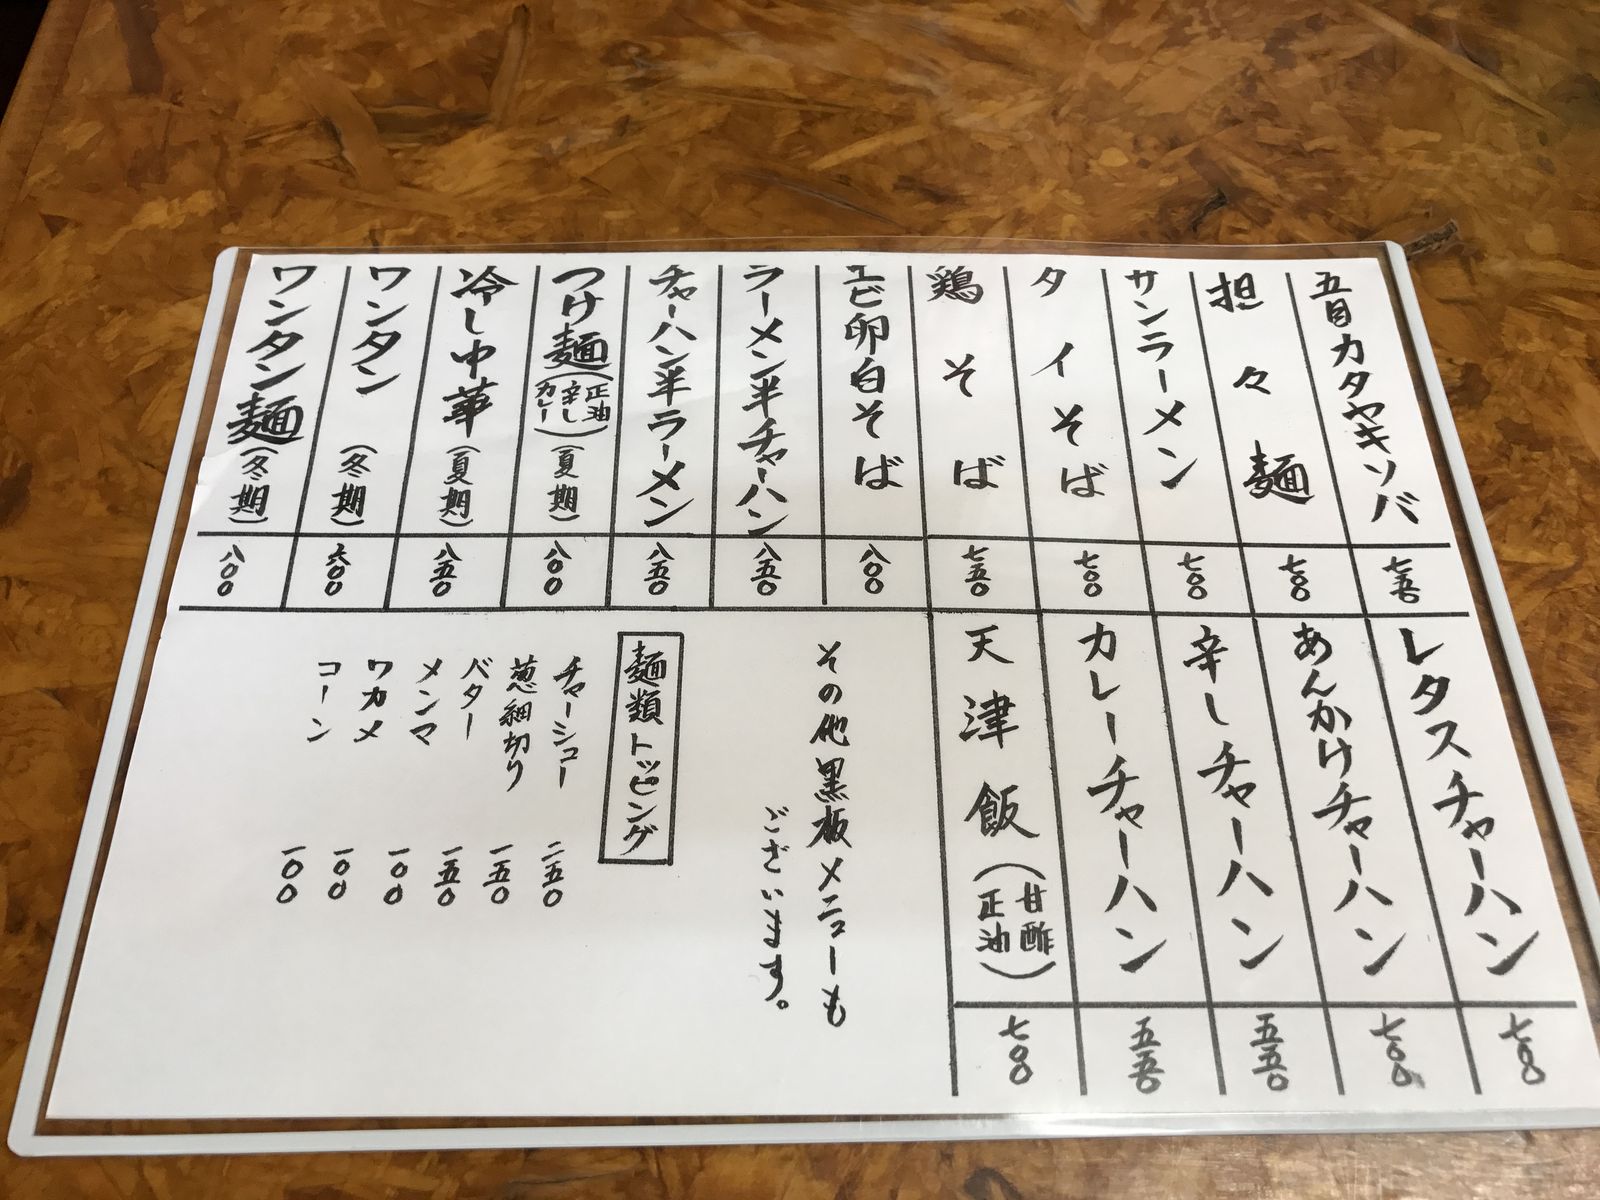 五目カタヤキソバ 七五〇
担々麺 七〇〇
サンラーメン 七〇〇
タイそば 七〇〇
鶏そば 七五〇
エビ卵白そば 八〇〇
ラーメン半チャーハン 八五〇
チャーハン半ラーメン 八五〇
つけ麺(正油 辛し カレー)(夏期) 八〇〇
冷し中華(夏期) 八五〇
ワンタン(冬期) 六〇〇
ワンタン麺(冬期) 八〇〇
レタスチャーハン 七〇〇
あんかけチャーハン 七〇〇
辛しチャーハン 五五〇
カレーチャーハン 五五〇
天津飯(甘酢 正油) 七〇〇
その他黒板メニューも
ございます。
麺類トッピング
チャーシュー 二五〇
葱細切り 一五〇
バター 一五〇
メンマ 一〇〇
ワカメ 一〇〇
コーン 一〇〇